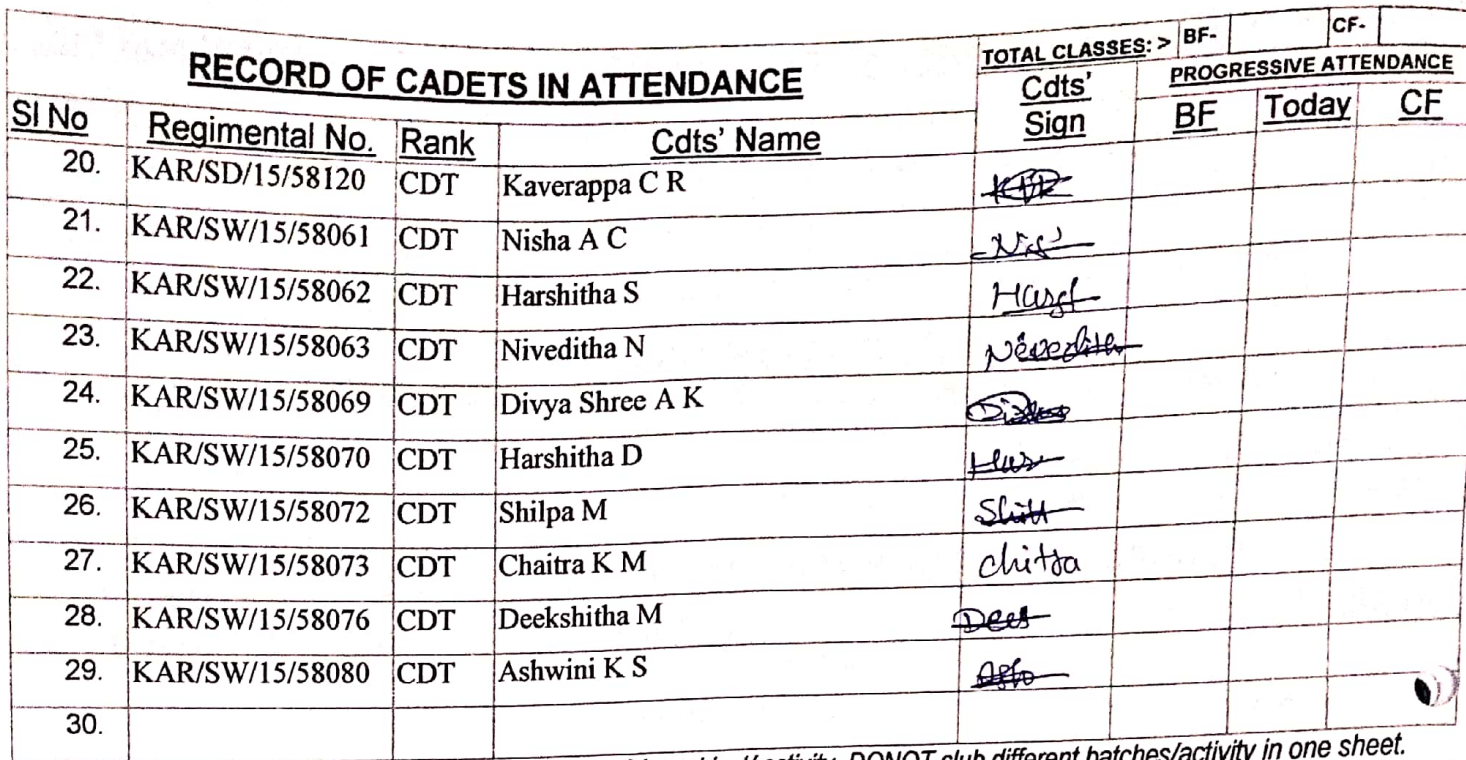 TOTAL CLASSES: > BF- CF-
RECORD OF CADETS IN ATTENDANCE Cdts' Sign PROGRESSIVE ATTENDANCE
Sl No Regimental No. Rank Cdts' Name BF Today CF
20. KAR/SD/15/58120 CDT Kaverappa C R
21. KAR/SW/15/58061 CDT Nisha A C
22. KAR/SW/15/58062 CDT Harshitha S
23. KAR/SW/15/58063 CDT Niveditha N
24. KAR/SW/15/58069 CDT Divya Shree A K
25. KAR/SW/15/58070 CDT Harshitha D
26. KAR/SW/15/58072 CDT Shilpa M
27. KAR/SW/15/58073 CDT Chaitra K M chitra
28. KAR/SW/15/58076 CDT Deekshitha M
29. KAR/SW/15/58080 CDT Ashwini K S
30.
DONOT club different batches/activity in one sheet.